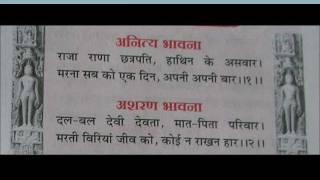 अनित्य भावना
राजा राणा छत्रपति, हाथिन के असवार।
मरना सब को एक दिन, अपनी अपनी बार।।१।।
अशरण भावना
दल-बल देवी देवता, मात-पिता परिवार।
मरती विरियां जीव को, कोई न राखन हार।।२।।